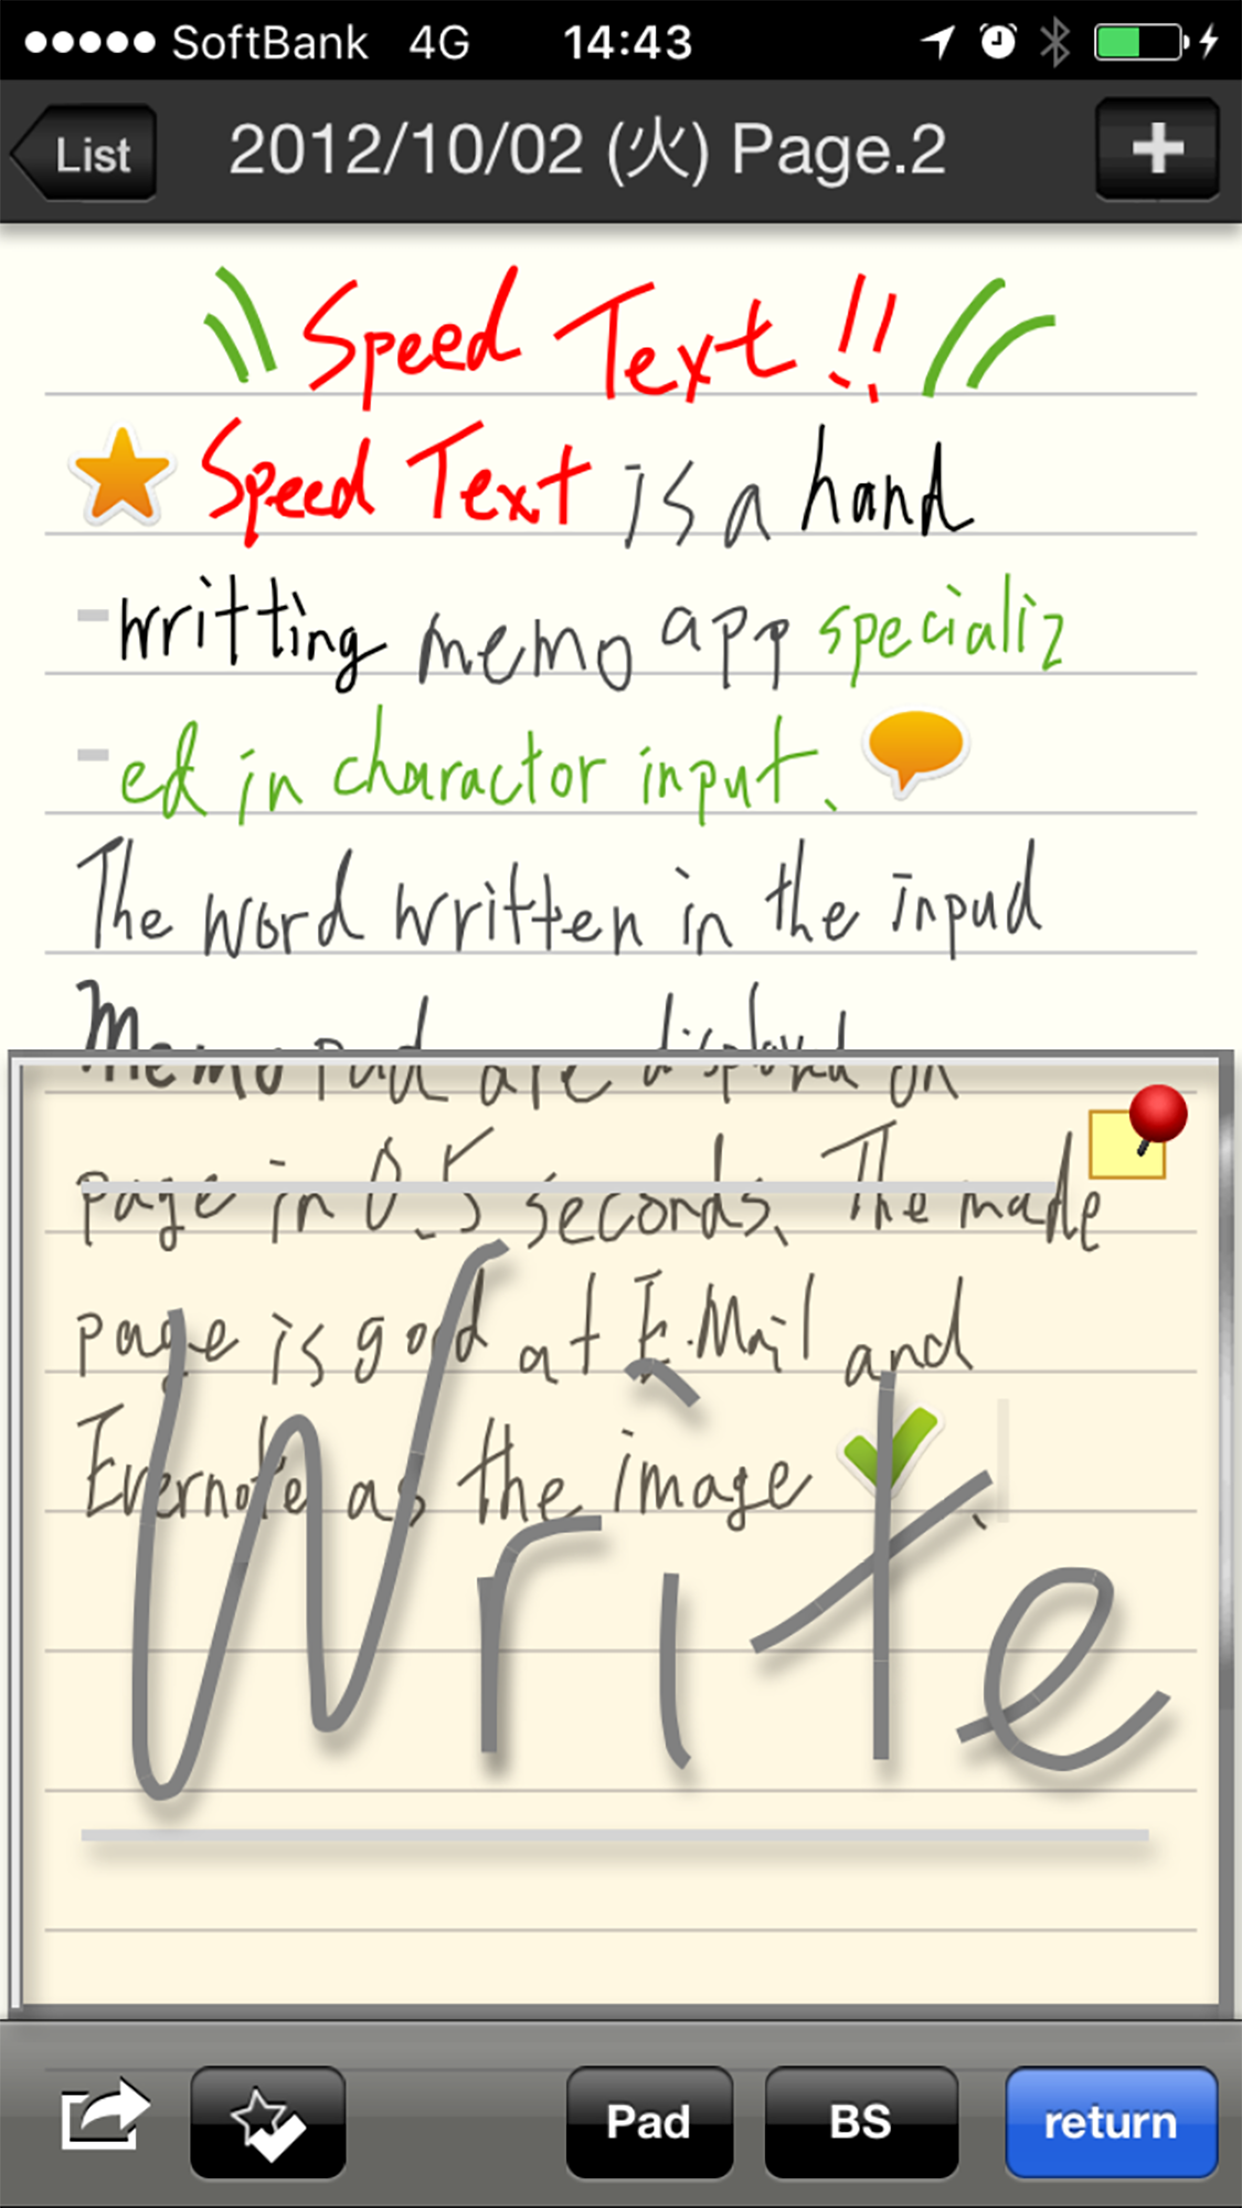 SoftBank 4G 14:43
List 2012/10/02 (火) Page.2 +
Speed Text!!
Speed Text is a hand
-writting memo app specializ
-ed in charactor input.
The word written in the inpud
Memo Pad are displayed on
page in 0.5 seconds. The made
page is good at E.Mail and
Evernote as the image.
Write
Pad BS return